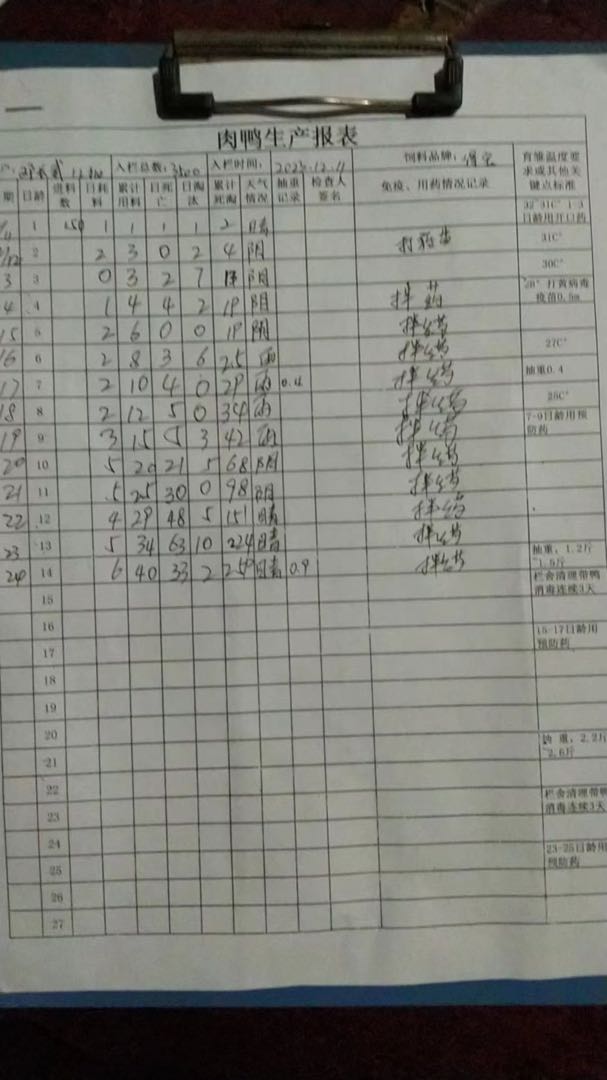 肉鸭生产报表
入栏总数：3500 入栏时间：2023.12.11 饲料品牌： 育雏温度要求或其他关键点标准
期 日龄 进料数 日耗料 累计用料 日死亡 日淘汰 累计死淘 天气情况 抽重记录 检查人签名 免疫、用药情况记录
1 150 1 1 1 1 2 晴 32°31C° 1-3日龄用开口药
2 2 3 0 2 4 阴 31C°
3 3 0 3 2 7 阴 30C°
4 4 1 4 4 2 19 阴 拌药 打黄病毒疫苗0.5m
15 5 2 6 0 0 19 阴 拌药
16 6 2 8 3 6 25 雨 拌药 27C°
17 7 2 10 4 0 29 雨 0.4 拌药 抽重0.4
18 8 2 12 5 0 34 雨 拌药 7-9日龄用预防药
19 9 3 15 5 3 42 雨 拌药
20 10 5 20 21 5 68 阴 拌药
21 11 5 25 30 0 98 阴 拌药
22 12 4 29 48 5 151 晴 拌药
23 13 5 34 63 10 224 晴 拌药 抽重，1.2斤
24 14 6 40 33 2 259 晴 0.9 拌药 栏舍清理带鸭消毒连续3天
15
16 15-17日龄用预防药
17
18
19
20 重，2.2斤
21 2.6斤
22 栏舍清理带鸭消毒连续3天
23
24 23-25日龄用预防药
25
26
27